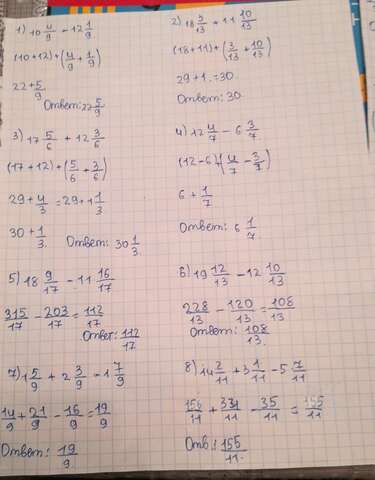 1) 10 4/9 - 12 1/9
(10+12)+(4/9+1/9)
22+5/9
Ответ: 22 5/9
2) 18 3/13 + 11 10/13
(18+11)+(3/13+10/13)
29+1.=30
Ответ: 30.
3) 17 5/6 + 12 3/6
(17+12)+(5/6+3/6)
29+4/3=29+1 1/3
30+1/3.
Ответ: 30 1/3.
4) 12 4/7 - 6 3/7
(12-6)(4/7-3/7)
6+1/7
Ответ: 6 1/7.
5) 18 9/17 - 11 16/17
315/17-203/17=112/17
Ответ: 112/17
6) 19 12/13 - 12 10/13
228/13-120/13=108/13
Ответ: 108/13.
7) 1 5/9 + 2 3/9 - 1 7/9
14/9+21/9-16/9=19/9
Ответ: 19/9
8) 14 2/11 + 3 1/11 - 5 7/11
156/11+ /11-35/11=155/11
Отв: 155/11.